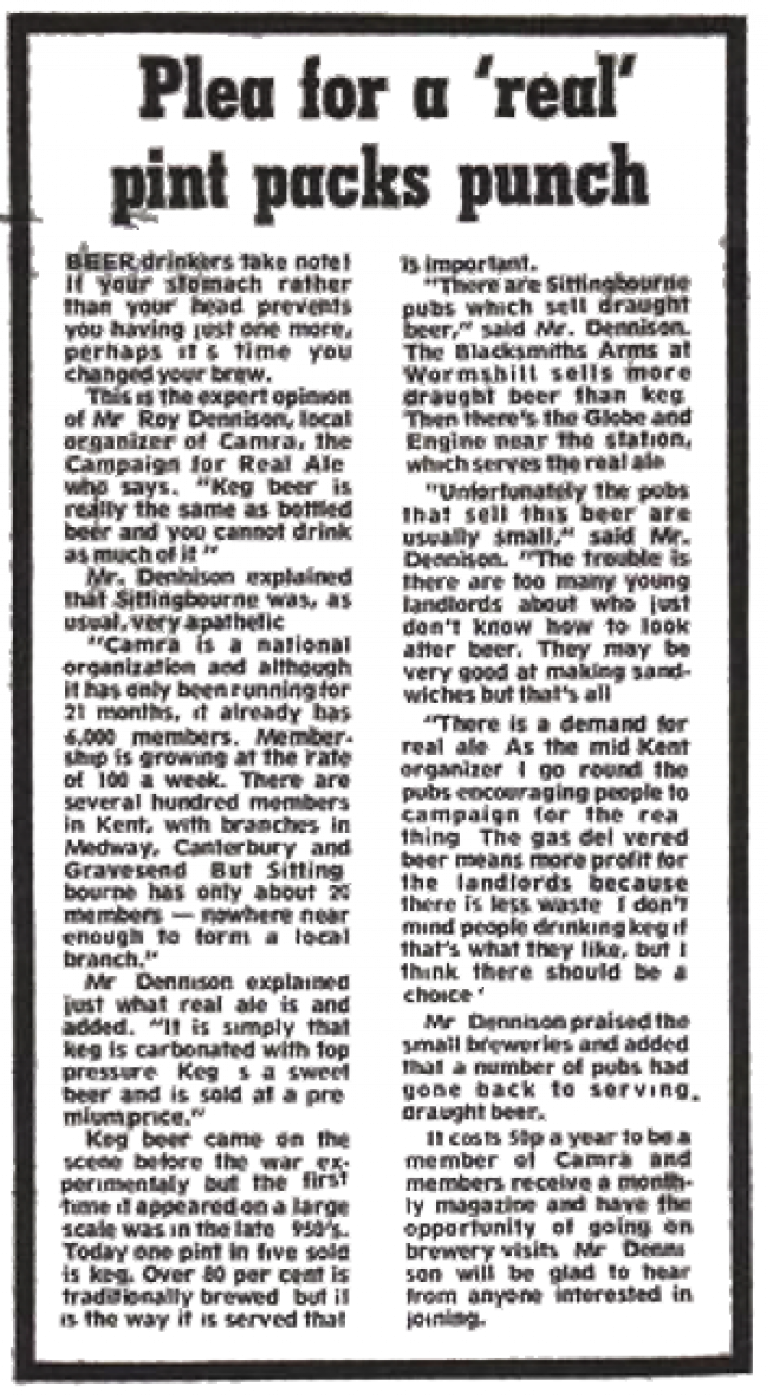 Plea for a 'real'
pint packs punch
BEER drinkers take note!
If your stomach rather
than your head prevents
you having just one more,
perhaps it s time you
changed your brew.
This is the expert opinion
of Mr Roy Dennison, local
organizer of Camra, the
Campaign for Real Ale
who says. "Keg beer is
really the same as bottled
beer and you cannot drink
as much of it "
Mr. Dennison explained
that Sittingbourne was, as
usual, very apathetic
"Camra is a national
organization and although
it has only been running for
21 months, it already has
6,000 members. Member-
ship is growing at the rate
of 100 a week. There are
several hundred members
in Kent, with branches in
Medway, Canterbury and
Gravesend But Sitting
bourne has only about
members — nowhere near
enough to form a local
branch."
Mr Dennison explained
just what real ale is and
added. "It is simply that
keg is carbonated with top
pressure Keg s a sweet
beer and is sold at a pre
mium price."
Keg beer came on the
scene before the war ex-
perimentaly but the first
time it appeared on a large
scale was in the late 950's.
Today one pint in five sold
is keg. Over 80 per cent is
traditionally brewed but it
is the way it is served that
is important.
"There are Sittingbourne
pubs which sell draught
beer," said Mr. Dennison.
The Blacksmiths Arms at
Wormshill sells more
draught beer than keg
Then there's the Globe and
Engine near the station,
which serves the real ale
"Unfortunately the pubs
that sell this beer are
usually small," said Mr.
Dennison. "The trouble is
there are too many young
landlords about who just
don't know how to look
after beer. They may be
very good at making sand-
wiches but that's all
"There is a demand for
real ale As the mid Kent
organizer I go round the
pubs encouraging people to
campaign for the rea
thing The gas del vered
beer means more profit for
the landlords because
there is less waste I don't
mind people drinking keg if
that's what they like, but I
think there should be a
choice '
Mr Dennison praised the
small breweries and added
that a number of pubs had
gone back to serving.
draught beer.
It costs 50p a year to be a
member of Camra and
members receive a month-
ly magazine and have the
opportunity of going on
brewery visits Mr Denni
son will be glad to hear
from anyone interested in
joining.